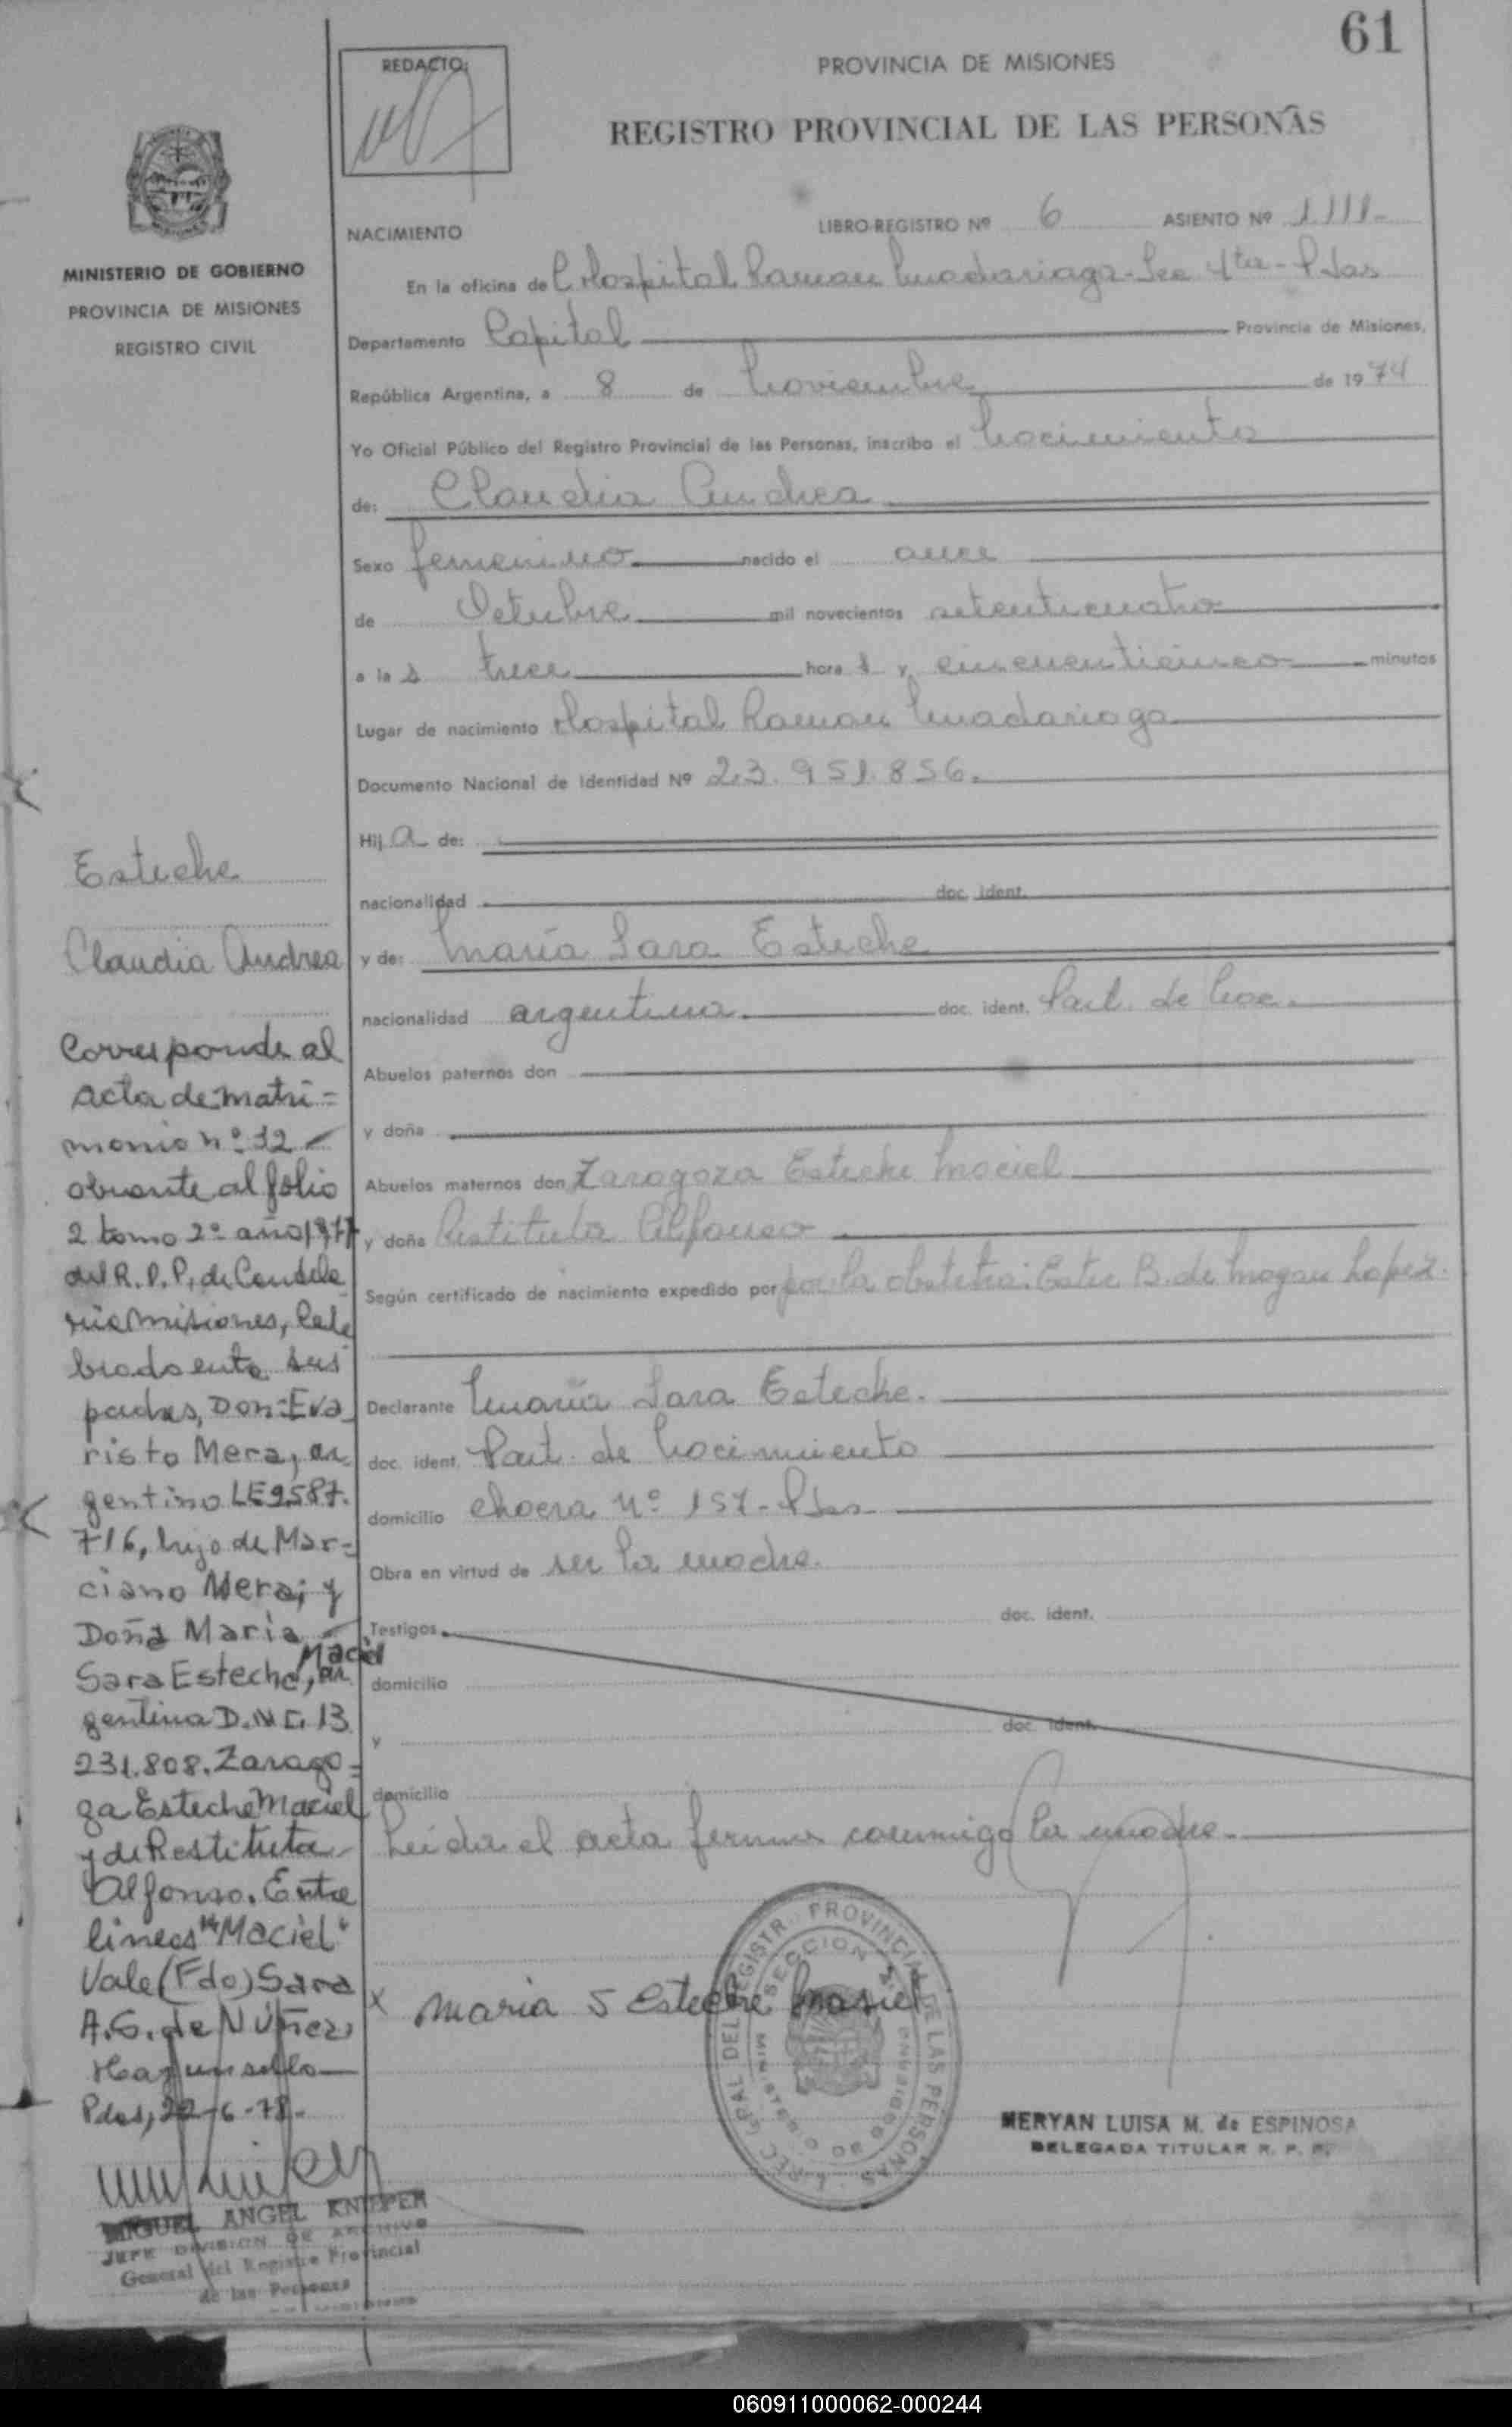 61
REDACTO:
PROVINCIA DE MISIONES
REGISTRO PROVINCIAL DE LAS PERSONAS
MINISTERIO DE GOBIERNO
PROVINCIA DE MISIONES
REGISTRO CIVIL
NACIMIENTO LIBRO-REGISTRO Nº 6 ASIENTO Nº 1111-
En la oficina de Hospital Ramon Madariaga - Sec 4ta - Pdas
Departamento Capital Provincia de Misiones,
República Argentina, a 8 de Noviembre de 1974
Yo Oficial Público del Registro Provincial de las Personas, inscribo el Nacimiento
de: Claudia Andrea
Sexo femenino nacido el once
de Octubre mil novecientos setenticuatro
a la s trece hora s y cincuenticinco minutos
Lugar de nacimiento Hospital Ramon Madariaga
Documento Nacional de Identidad Nº 23.951.856.
Hij a de:
nacionalidad doc. ident.
y de: María Sara Esteche
nacionalidad argentina. doc. ident. Part. de Nac.
Abuelos paternos don
y doña
Abuelos maternos don Zaragoza Esteche Maciel
y doña Restituta Alfonso
Según certificado de nacimiento expedido por por la obstetra: Ester B. de Mogan Lopez.
Declarante María Sara Esteche.
doc. ident. Part. de Nacimiento
domicilio chacra nº 157 - Pdas
Obra en virtud de ser la madre.
Testigos doc. ident.
domicilio
y doc. ident.
domicilio
Leida el acta firma conmigo la madre.
Maria S Esteche Masiel
REGISTRO PROVINCIAL DE LAS PERSONAS
SECCION
MERYAN LUISA M. de ESPINOSA
DELEGADA TITULAR R. P. P.
Esteche
Claudia Andrea
Corresponde al
acta de matri=
monio nº 12
obrante al folio
2 tomo 2º año 1977
del R.P.P. de Candela
ria Misiones, Cele
brado ente sus
padres, Don: Eva
risto Mera, ar
gentino LE 9587.
716, hijo de Mar=
ciano Mera; y
Doña Maria
Maciel
Sara Esteche, ar
gentina D.N.I. 13
231.808. Zarago=
za Esteche Maciel
y de Restituta
Alfonso. Entre
lineas "Maciel"
Vale (Fdo) Sara
A.G. de Núñez
Hay un sello
Pdas, 22-6-78.
MIGUEL ANGEL KNIEPER
JEFE DIVISION DE ARCHIVO
General del Registro Provincial
de las Personas
060911000062-000244